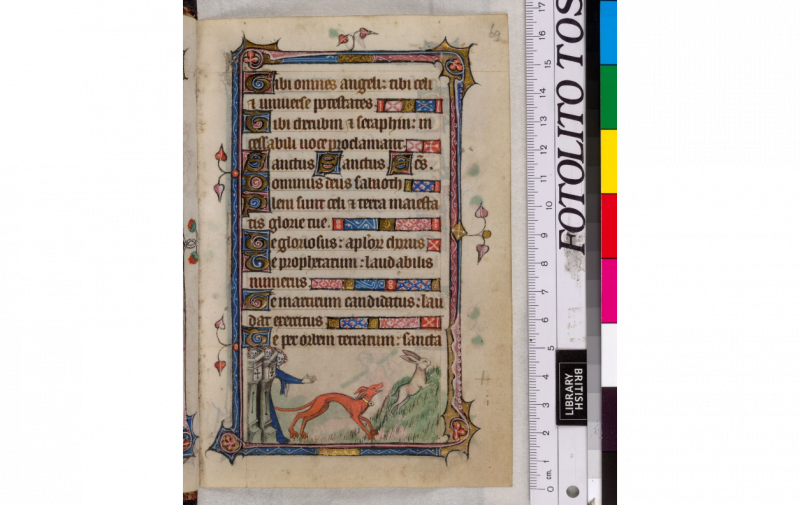 69
Tibi omnes angeli: tibi celi
⁊ uniuerse potestates.
Tibi cherubin ⁊ seraphin: in
cessabili uoce proclamant.
Sanctus Sanctus. Scs.
Dominus deus sabaoth
Pleni sunt celi ⁊ terra maiesta
tis glorie tue.
Te gloriosus: aplor chorus
Te prophetarum: laudabilis
numerus
Te martirum candidatus: lau
dat exercitus
Te per orbem terrarum: sancta
FOTOLITO TOS
BRITISH
LIBRARY
17
16
15
14
13
12
11
10
9
8
7
6
5
4
3
2
1
0 cm